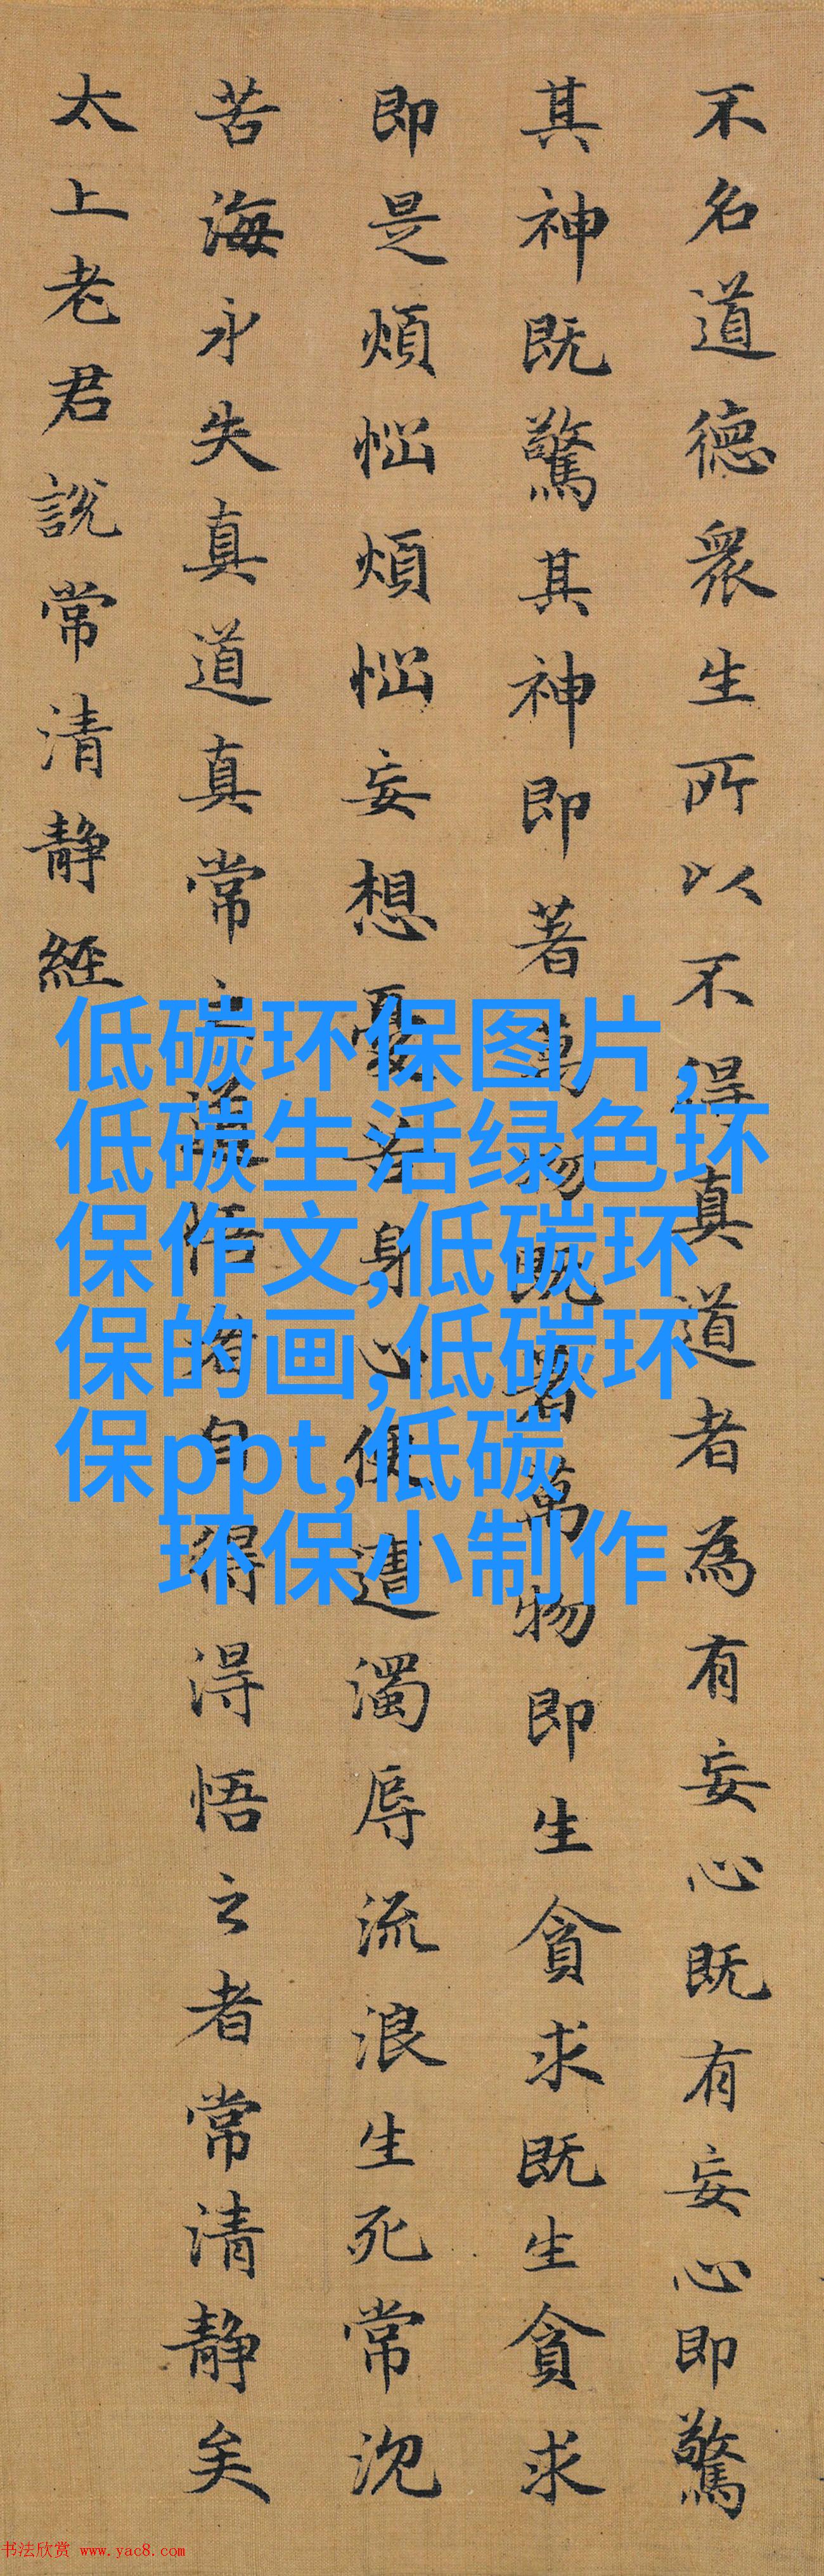 不名道德衆生所以不得真道者為有妄心既有妄心即驚
其神既驚其神即著萬物既著萬物即生貪求既生貪求
即是煩惱煩惱妄想憂苦身心便遭濁辱流浪生死常沉
苦海永失真道真常之道悟者自得得悟之者常清静矣
太上老君説常清静經
低碳环保图片,
低碳生活绿色环
保作文,低碳环
保的画,低碳环
保ppt,低碳
环保小制作
书法欣赏 www.yac8.com